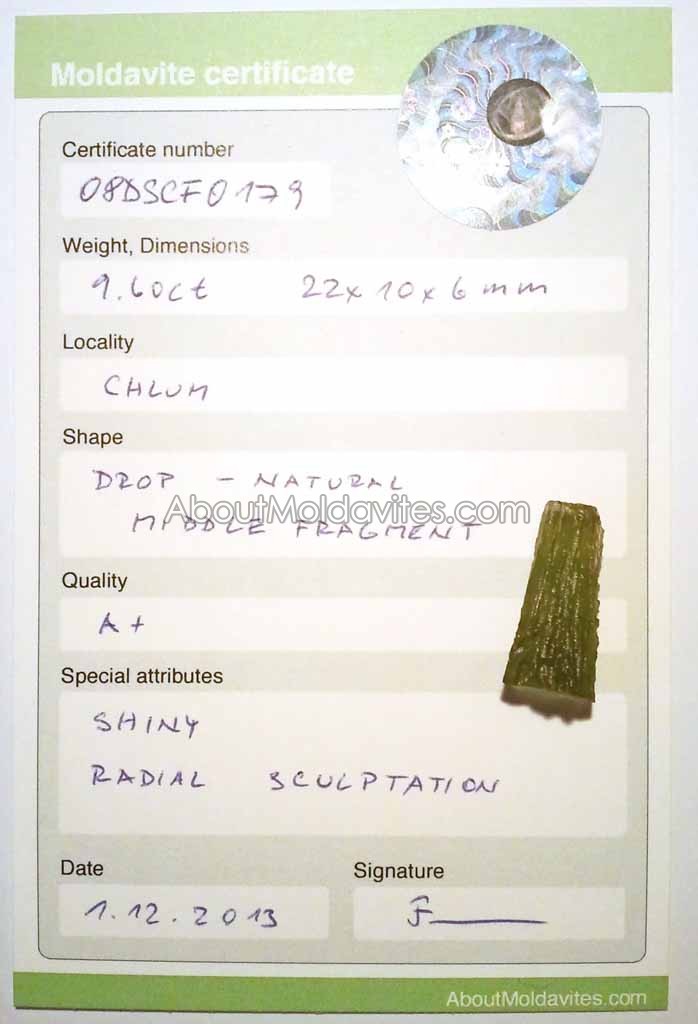 Moldavite certificate
Certificate number
08DSCF0179
Weight, Dimensions
9.60ct 22x10x6mm
Locality
CHLUM
Shape
DROP - NATURAL
AboutMoldavites.com
MIDDLE FRAGMENT
Quality
A+
Special attributes
SHINY
RADIAL SCULPTATION
Date
Signature
1.12.2013
F
AboutMoldavites.com